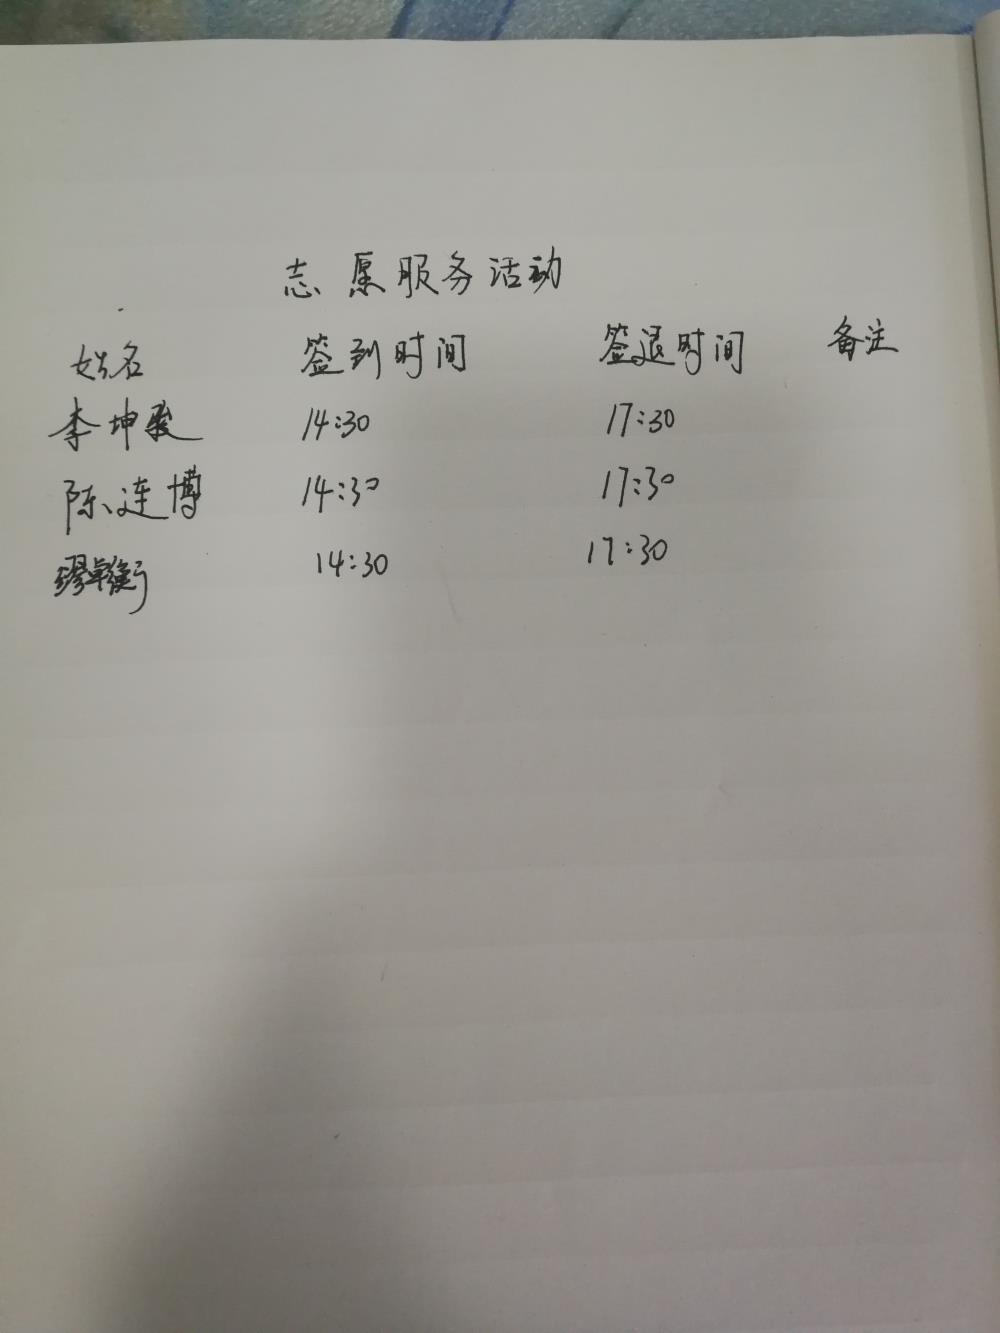 志愿服务活动
姓名 签到时间 签退时间 备注
李坤骏 14:30 17:30
陈连博 14:30 17:30
缪卓衡 14:30 17:30